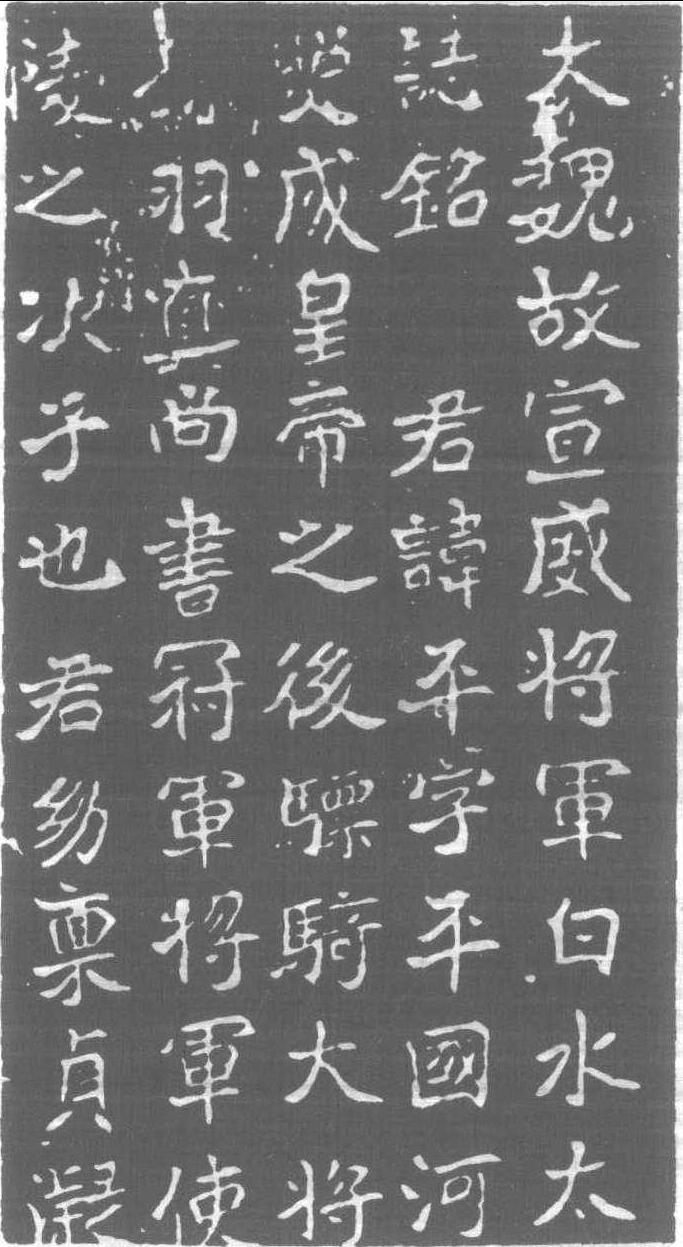 大魏故宣威將軍白水太
誌銘 君諱平字平國河
成皇帝之後驃騎大將
羽真尚書冠軍將軍使
陵之次子也君幼稟貞凝